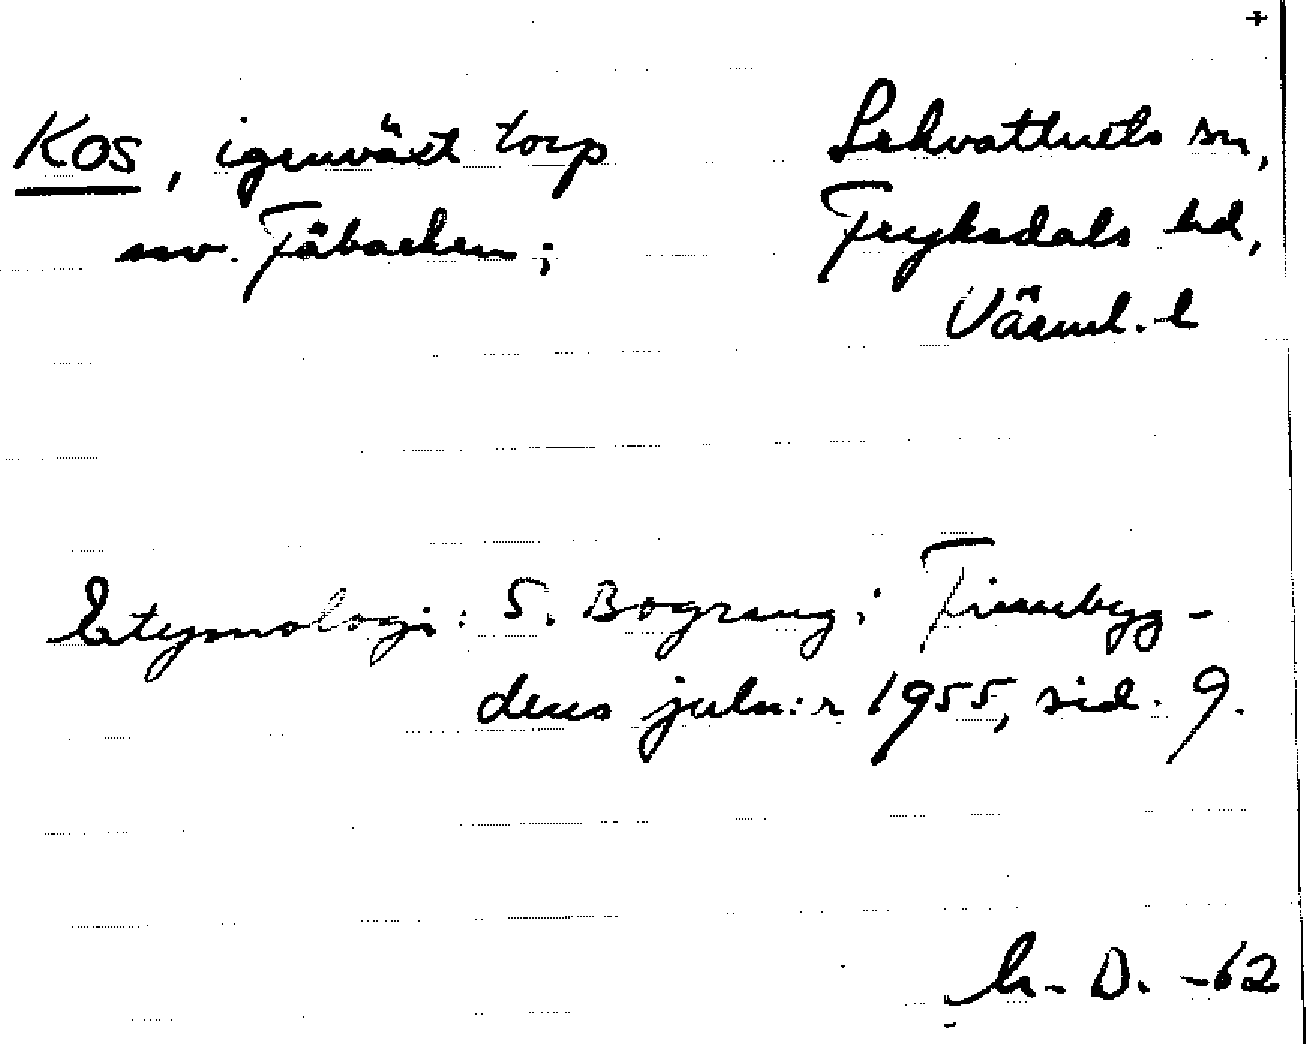 KOS, igenväxt torp
nv. Fäbacken;
Lekvattnets sn,
Fryksdals hd,
Värml. l
Etymologi: S. Bograng i Finnbyg-
dens julnr 1955, sid. 9.
D. -62